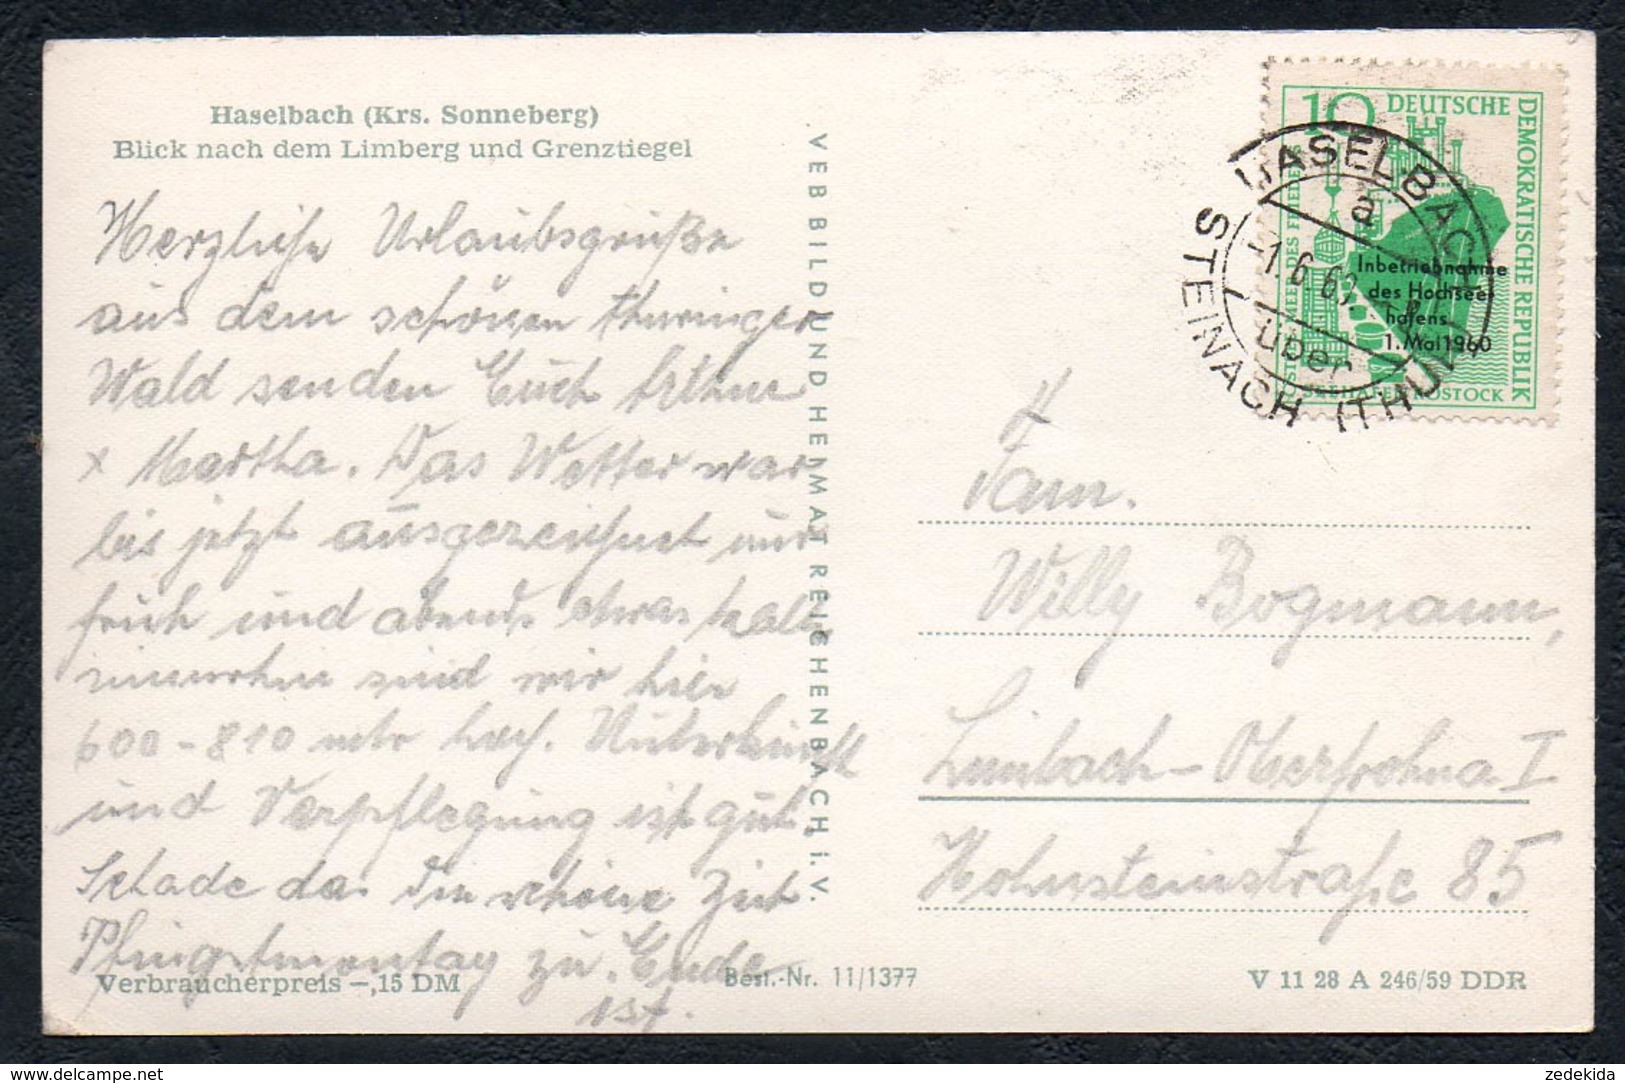 Haselbach (Krs. Sonneberg)
Blick nach dem Limberg und Grenztiegel
Herzliche Urlaubsgrüße
aus dem schönen Thüringer
Wald senden Euch Arthur
+ Martha. Das Wetter war
bis jetzt ausgezeichnet nur
früh und abends etwas kalt
immerhin sind wir hier
600-810 mtr hoch. Unterkunft
und Verpflegung ist gut,
Schade das die schöne Zeit
Pfingstmontag zu Ende
ist.
Verbraucherpreis -,15 DM
Best.-Nr. 11/1377
V 11 28 A 246/59 DDR
VEB BILD UND HEIMAT REICHENBACH i. V.
10 DEUTSCHE
DEMOKRATISCHE REPUBLIK
Inbetriebnahme
des Hochsee-
hafens
1. Mai 1960
ROSTOCK
HASELBACH
a
-1.6.60
über
STEINACH (THÜR)
Fam.
Willy Bogmann,
Limbach-Oberfrohna I
Hohnsteinstraße 85
www.delcampe.net
zedekida